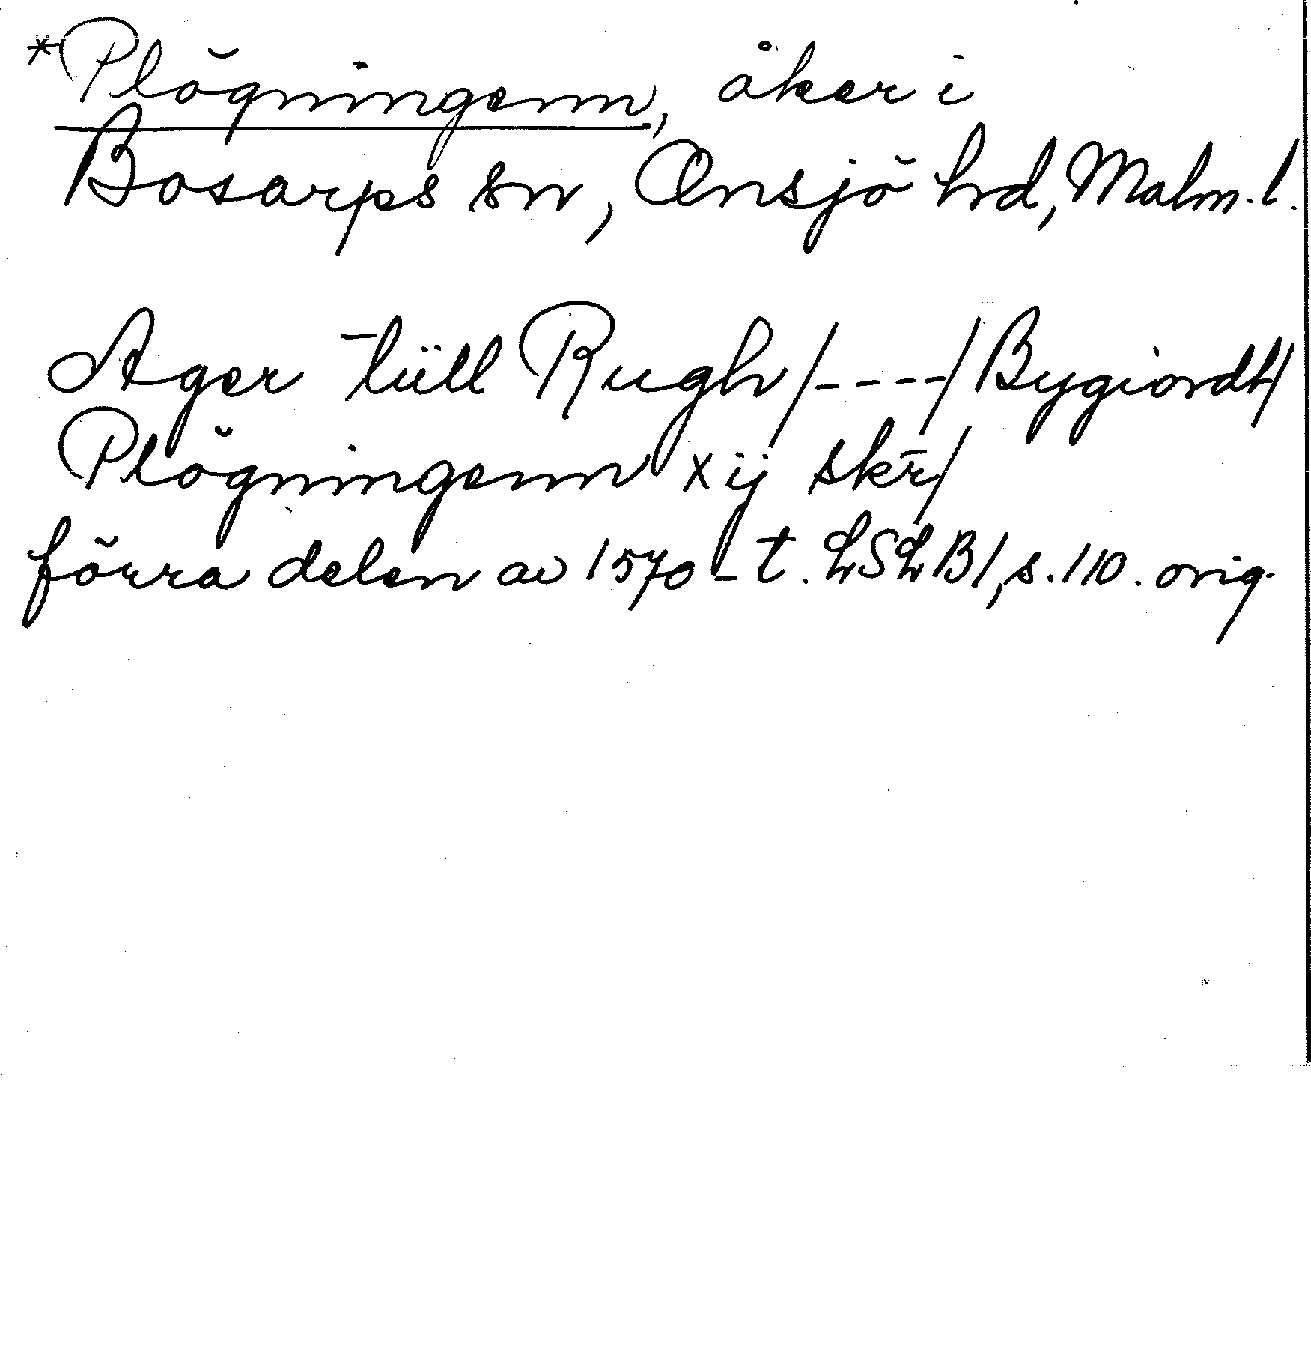 *Plögningenn, åker i
Bosarps sn, Onsjö hrd, Malm. l.
Ager tüll Rugh/----/Bygiordh/
Plögningenn xij skr̄/
förra delen av 1570-t. LSLB1, s. 110. orig.